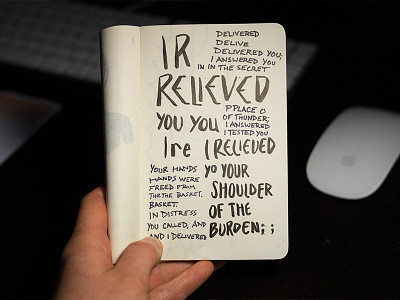 I R
RELIEVED
YOU YOU
Ire I RELIEVED
YO YOUR
SHOULDER
OF THE
BURDEN; ;
DELIVERED
DELIVE
DELIVERED YOU;
I ANSWERED YOU
IN IN THE SECRET
PPLACE O
OF THUNDER;
I ANSWERED
I TESTED YOU
YOUR HANDS
HANDS WERE
FREED FROM
THE THE BASKET.
BASKET.
IN DISTRESS
YOU CALLED, AND
AND I DELIVERED